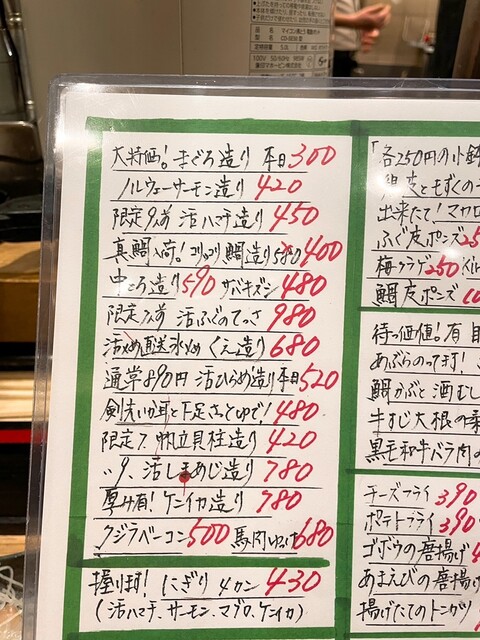 品名 マイコン沸とう電動ポット
100V 50/60Hz 985W
大特価!まぐろ造り 本日300
ノルウェーサーモン造り 420
限定9人前 活ハマチ造り 450
真鯛入荷!コリコリ鯛造り 580 400
中とろ造り590 サバキズシ 480
限定 人前 活ふぐのてっさ 980
直送 くえ造り 680
通常890円 活ひらめ造り本日520
剣先いか耳と下足さっとゆで!480
限定7 帆立貝柱造り 420
〃9、活しまあじ造り 780
厚み有!ケンイカ造り 780
クジラベーコン500 馬肉 680
握り球!にぎり4カン 430
(活ハマチ、サーモン、マグロ、ケンイカ)
「各250円の小鉢
皮ともずくの
出来たて!マカロ
ふぐ皮ポンズ25
梅クラゲ250
鯛皮ポンズ
待っ価値!有
あぶらのって
鯛かぶと酒むし
牛すじ大根の
黒毛和牛バラ肉の
チーズフライ390
ポテトフライ390
ゴボウの唐揚げ
あまえびの唐揚げ
揚げたてのトンカツ